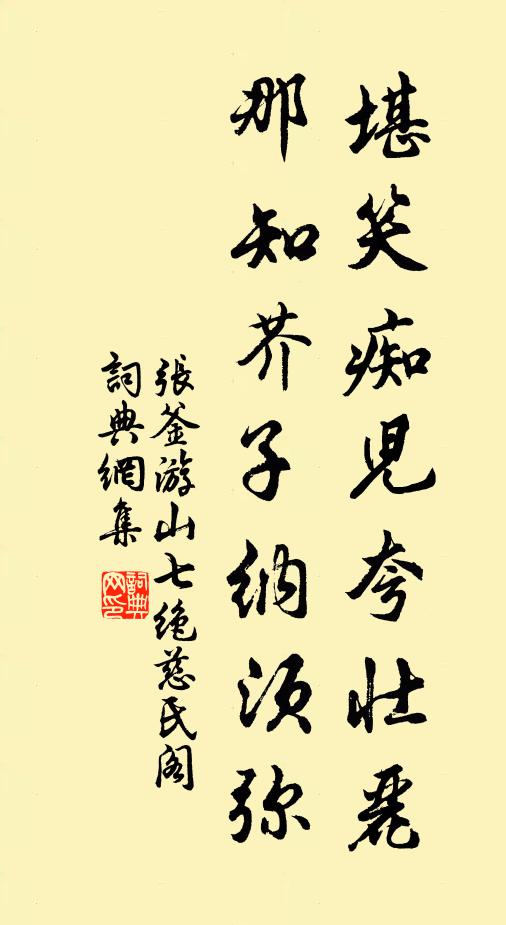 堪笑痴児夸壯麗
那知芥子納须弥
張釜游山七絶慈氏阁
詞典網集
詞典网印